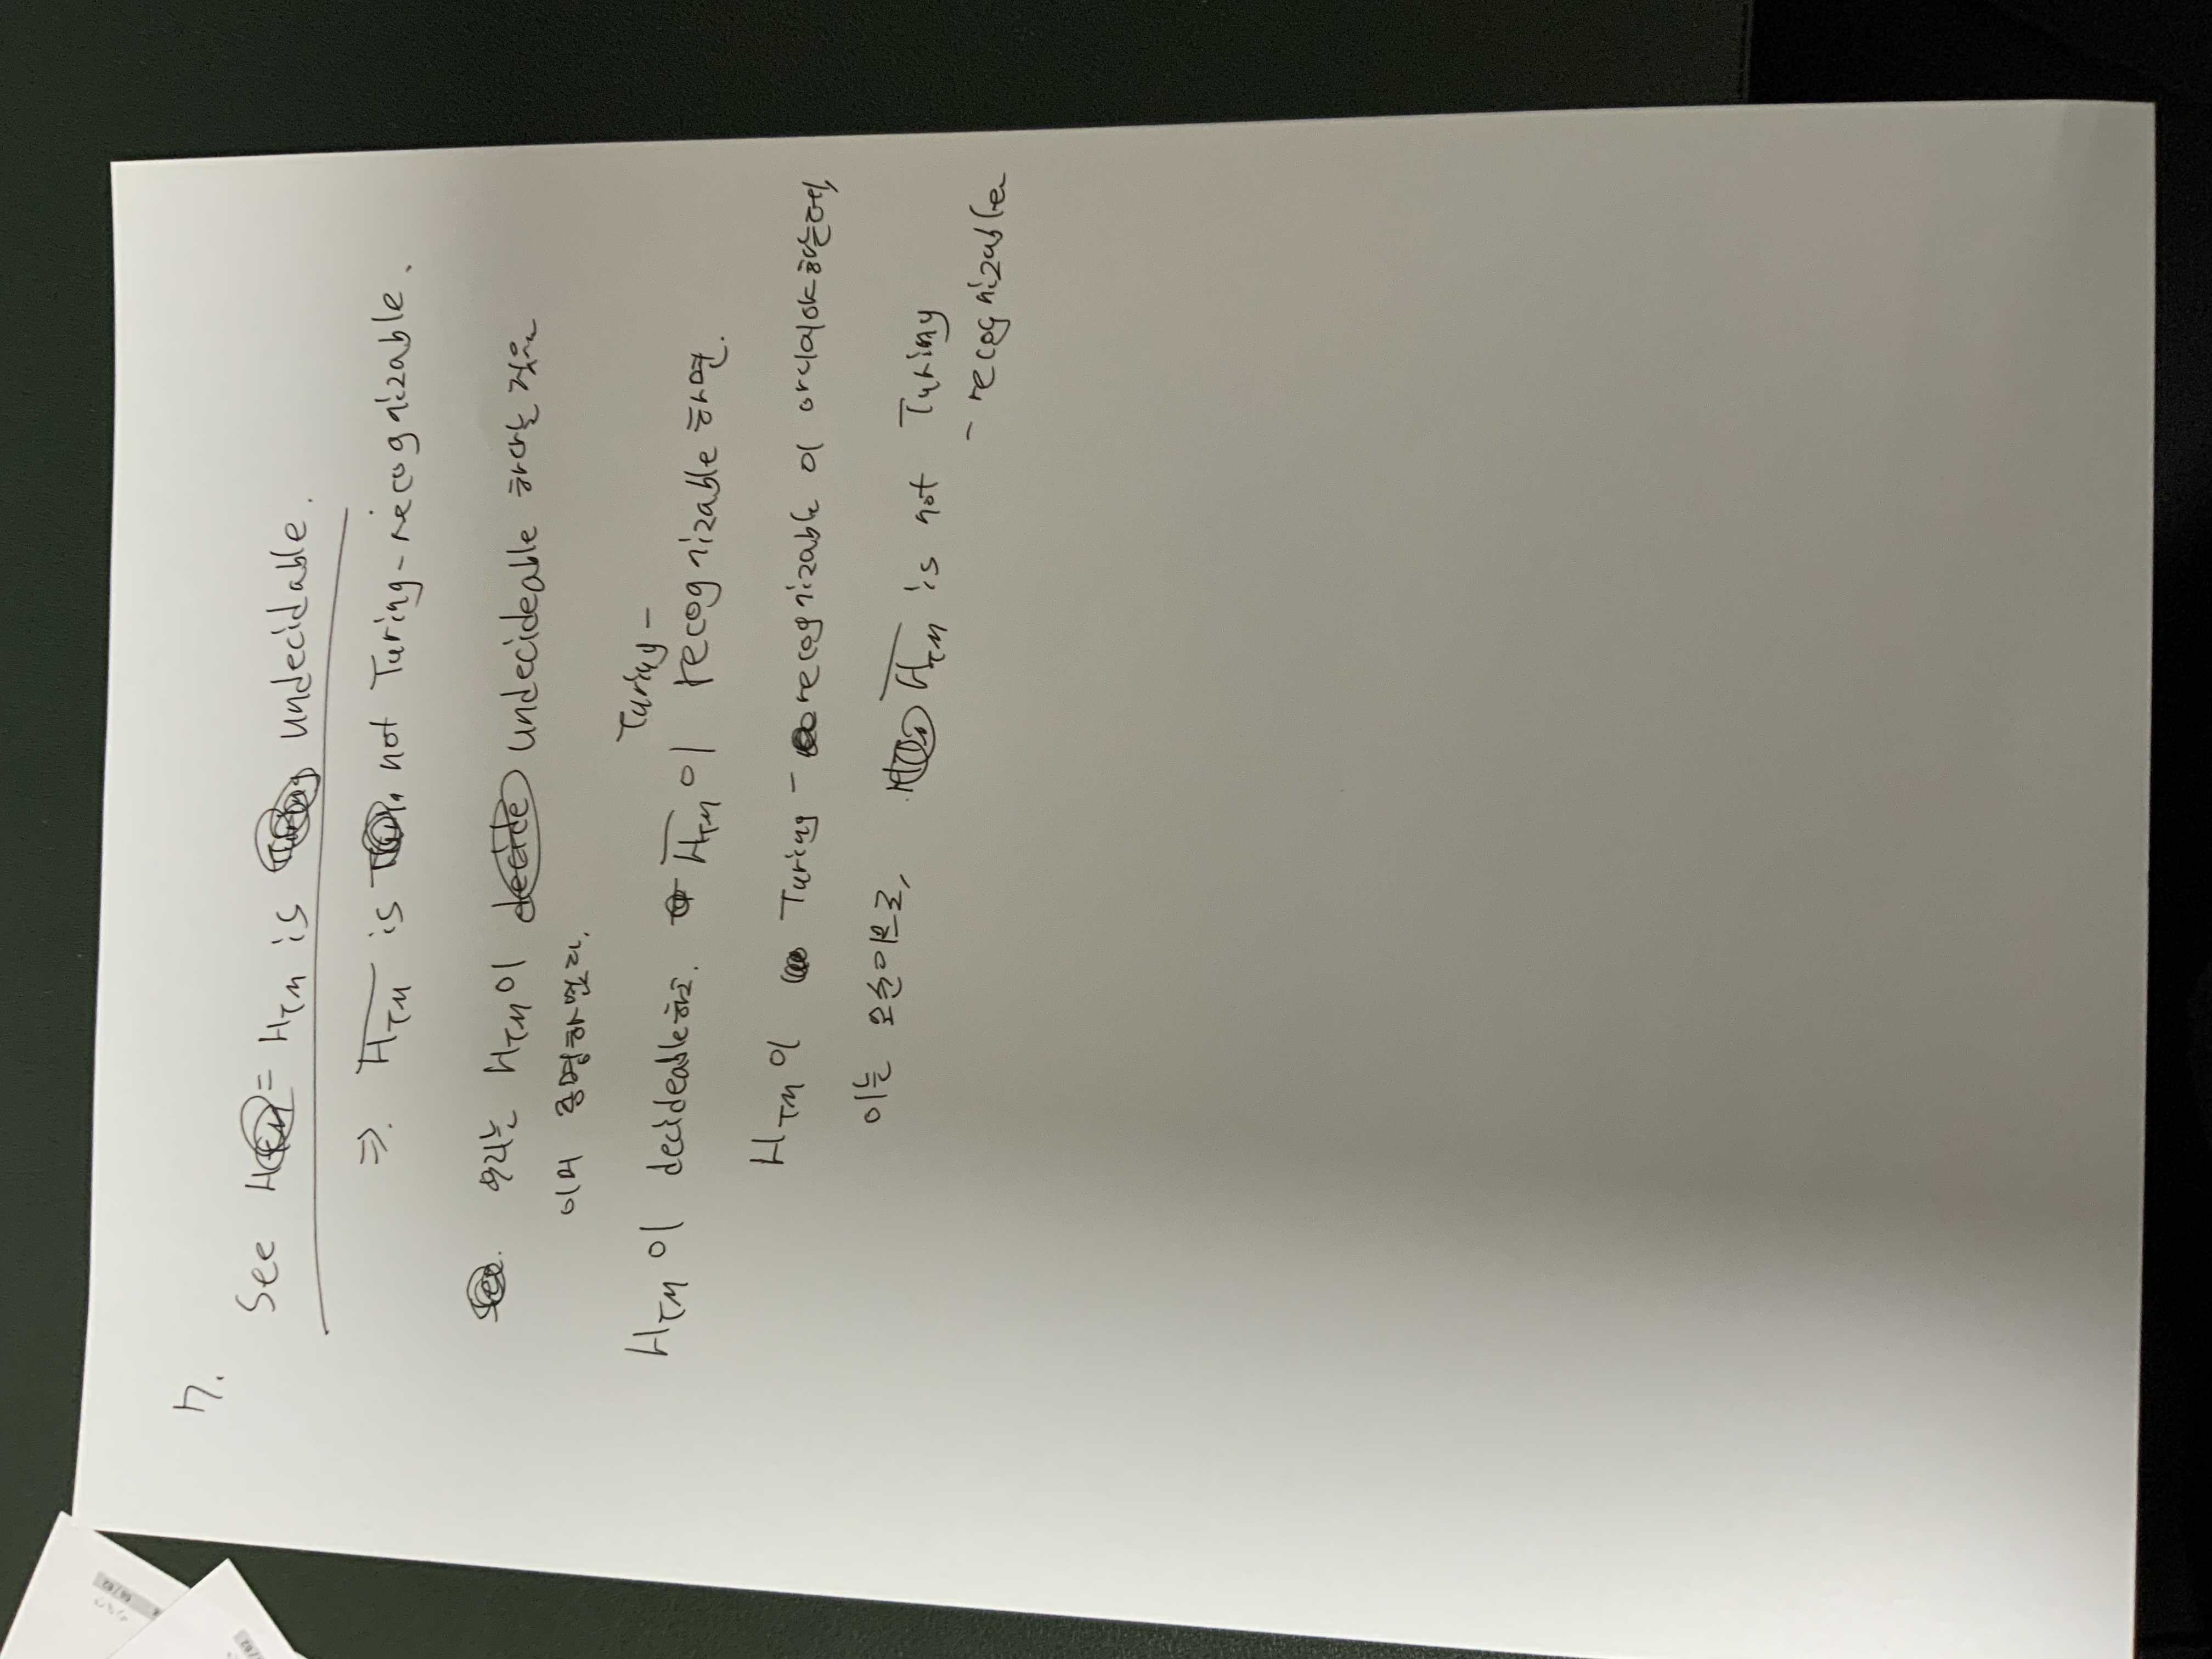 7.
See H = HTM is undecidable.
⇒. \overline{HTM} is not Turing-recognizable.
우리는 HTM이 undecideable 하다는 것을
이미 증명하였다.
HTM이 decideable하고. \overline{HTM}이 Turing-recognizable 하면.
HTM이 Turing-recognizable 이 아니어야하는데,
이는 모순이므로, \overline{HTM} is not Turing
-recognizable